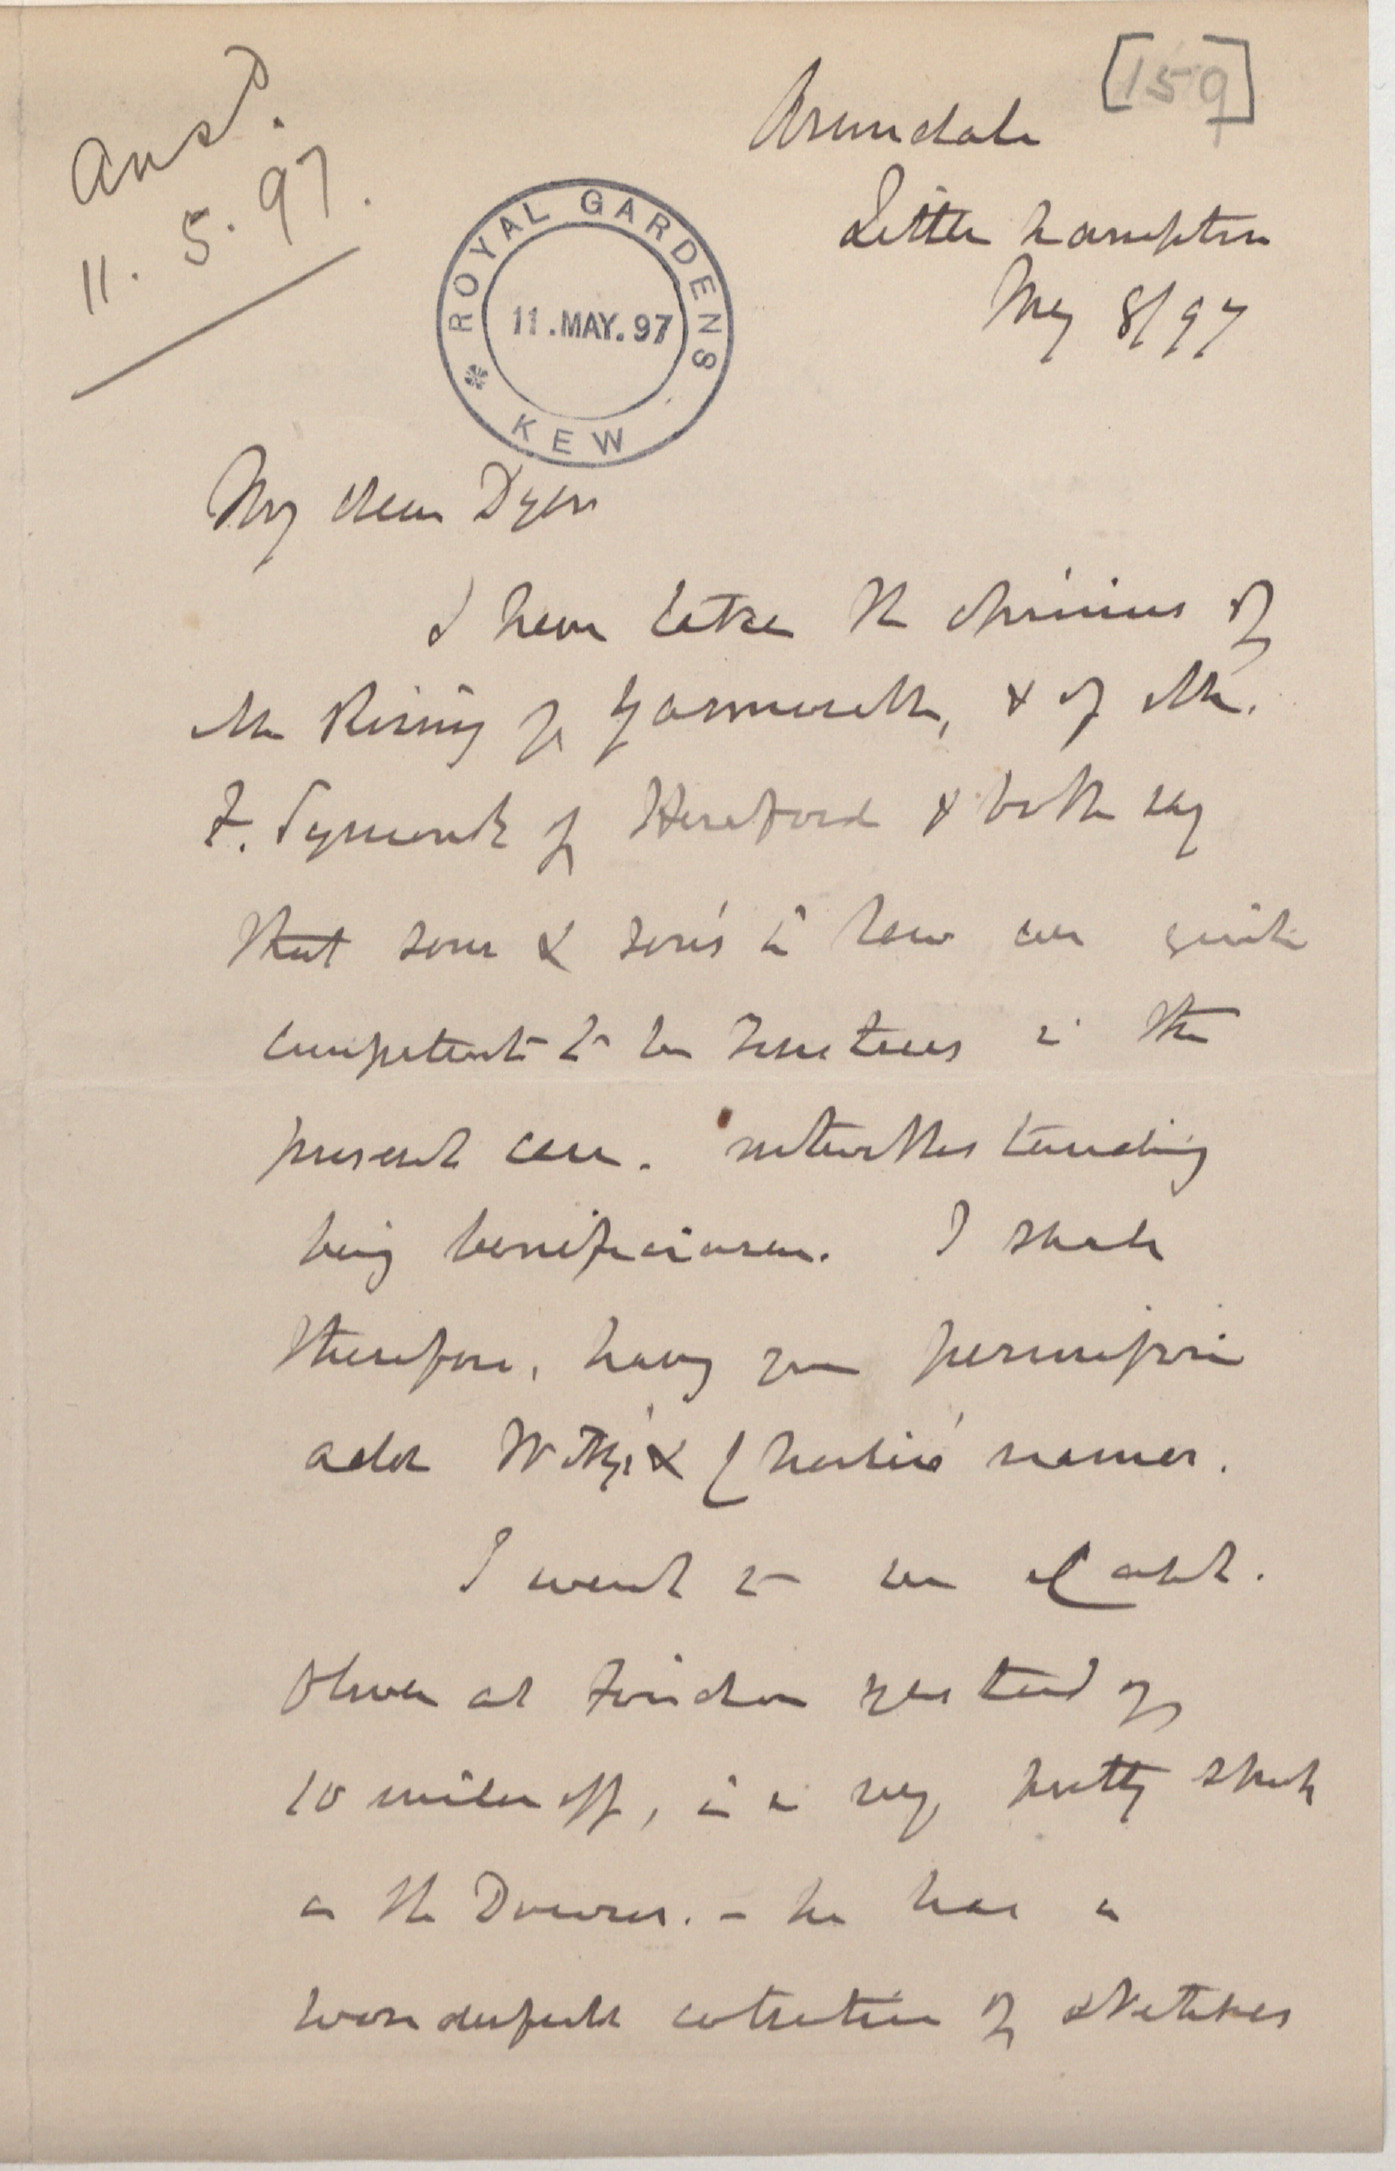 [159]
Ansd.
11.5.97.
Arundale
Little hampton
May 8/97
ROYAL GARDENS
11.MAY.97
KEW
My dear Dyer
I have taken the opinions of
Mr Rising of Yarmouth, & of Mr.
F. Symonds of Hereford & both say
that sons & sons in law are quite
competent to be trustees in the
present case. notwithstanding
being beneficiaries. I shall
therefore, having your permission
add Willy's & Charlie's names.
I went to see Capt.
Oliver at Findon yesterday
10 miles off, in a very pretty spot
on the Downs. - he has a
wonderful collection of sketches